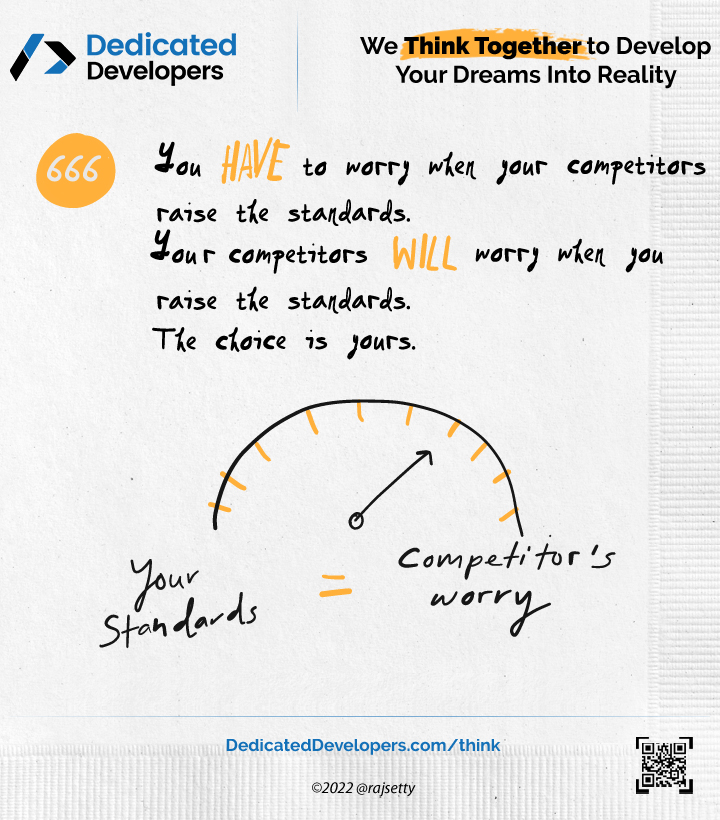 Dedicated
Developers
We Think Together to Develop
Your Dreams Into Reality
666
You HAVE to worry when your competitors
raise the standards.
Your competitors WILL worry when you
raise the standards.
The choice is yours.
Your
Standards
=
Competitor's
worry
DedicatedDevelopers.com/think
©2022 @rajsetty